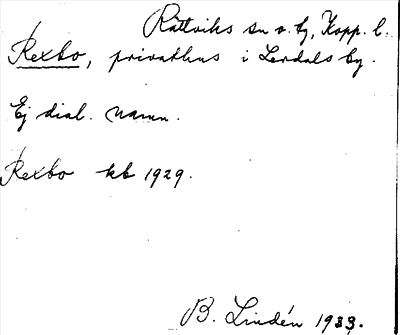 Rättviks sn o. by, Kopp. l.
Rexbo, privathus i Lerdals by.
Ej dial. namn.
Rexbo kb 1929.
B. Lindén 1933.